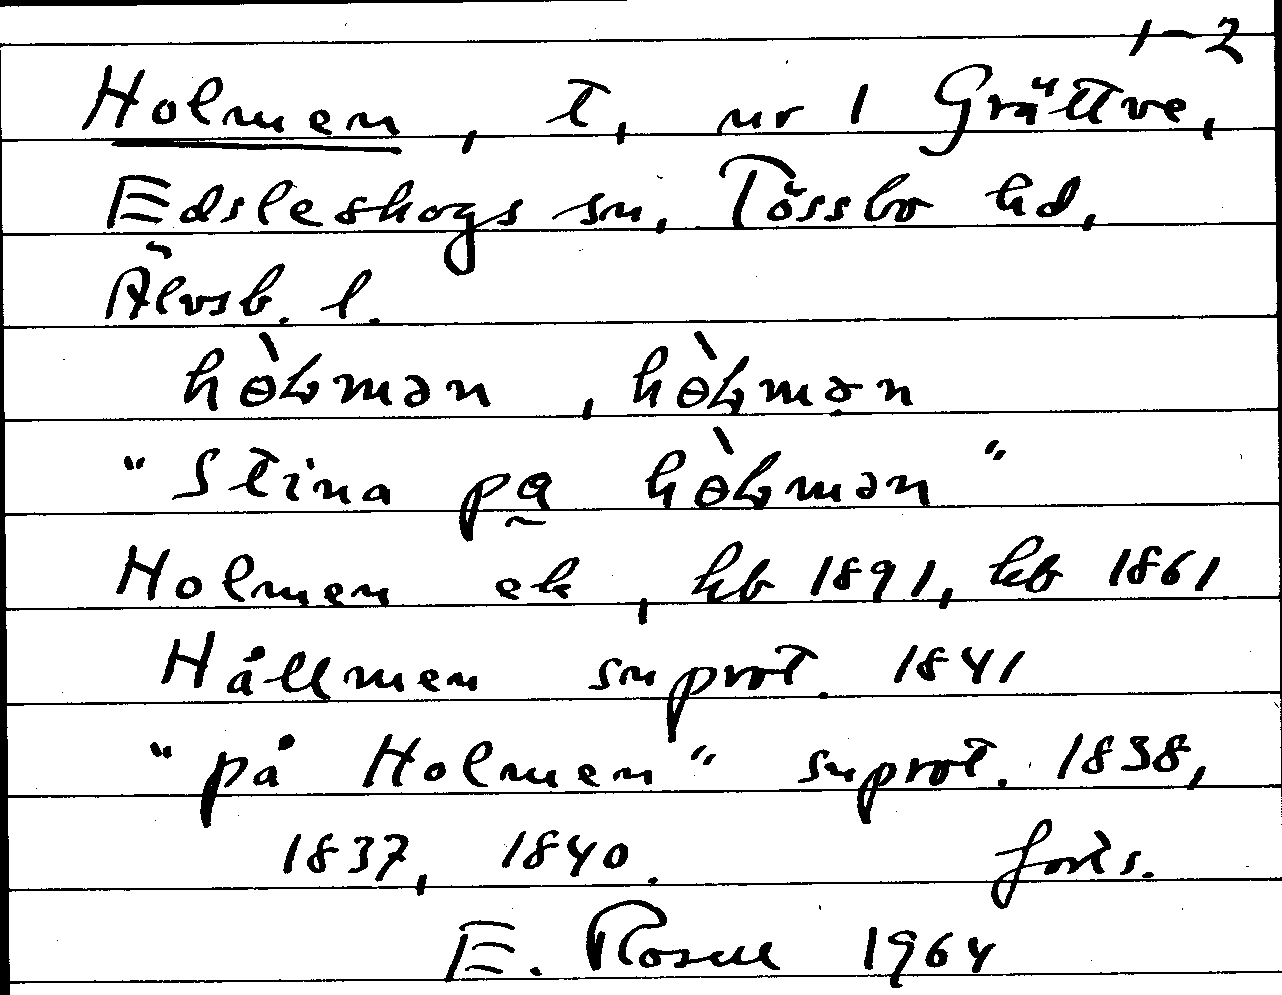 1-2
Holmen, t, nr 1 Grättve,
Edsleskogs sn, Tössbo hd,
Älvsb. l.
hɵ̀ɫmən, hɵ̀ɫmən
"Stina pa̰ hɵ̀ɫmən"
Holmen ek, hb 1891, hb 1861
Hållmen snprot. 1841
"på Holmen" snprot. 1838,
1837, 1840. forts.
E. Rosell 1964